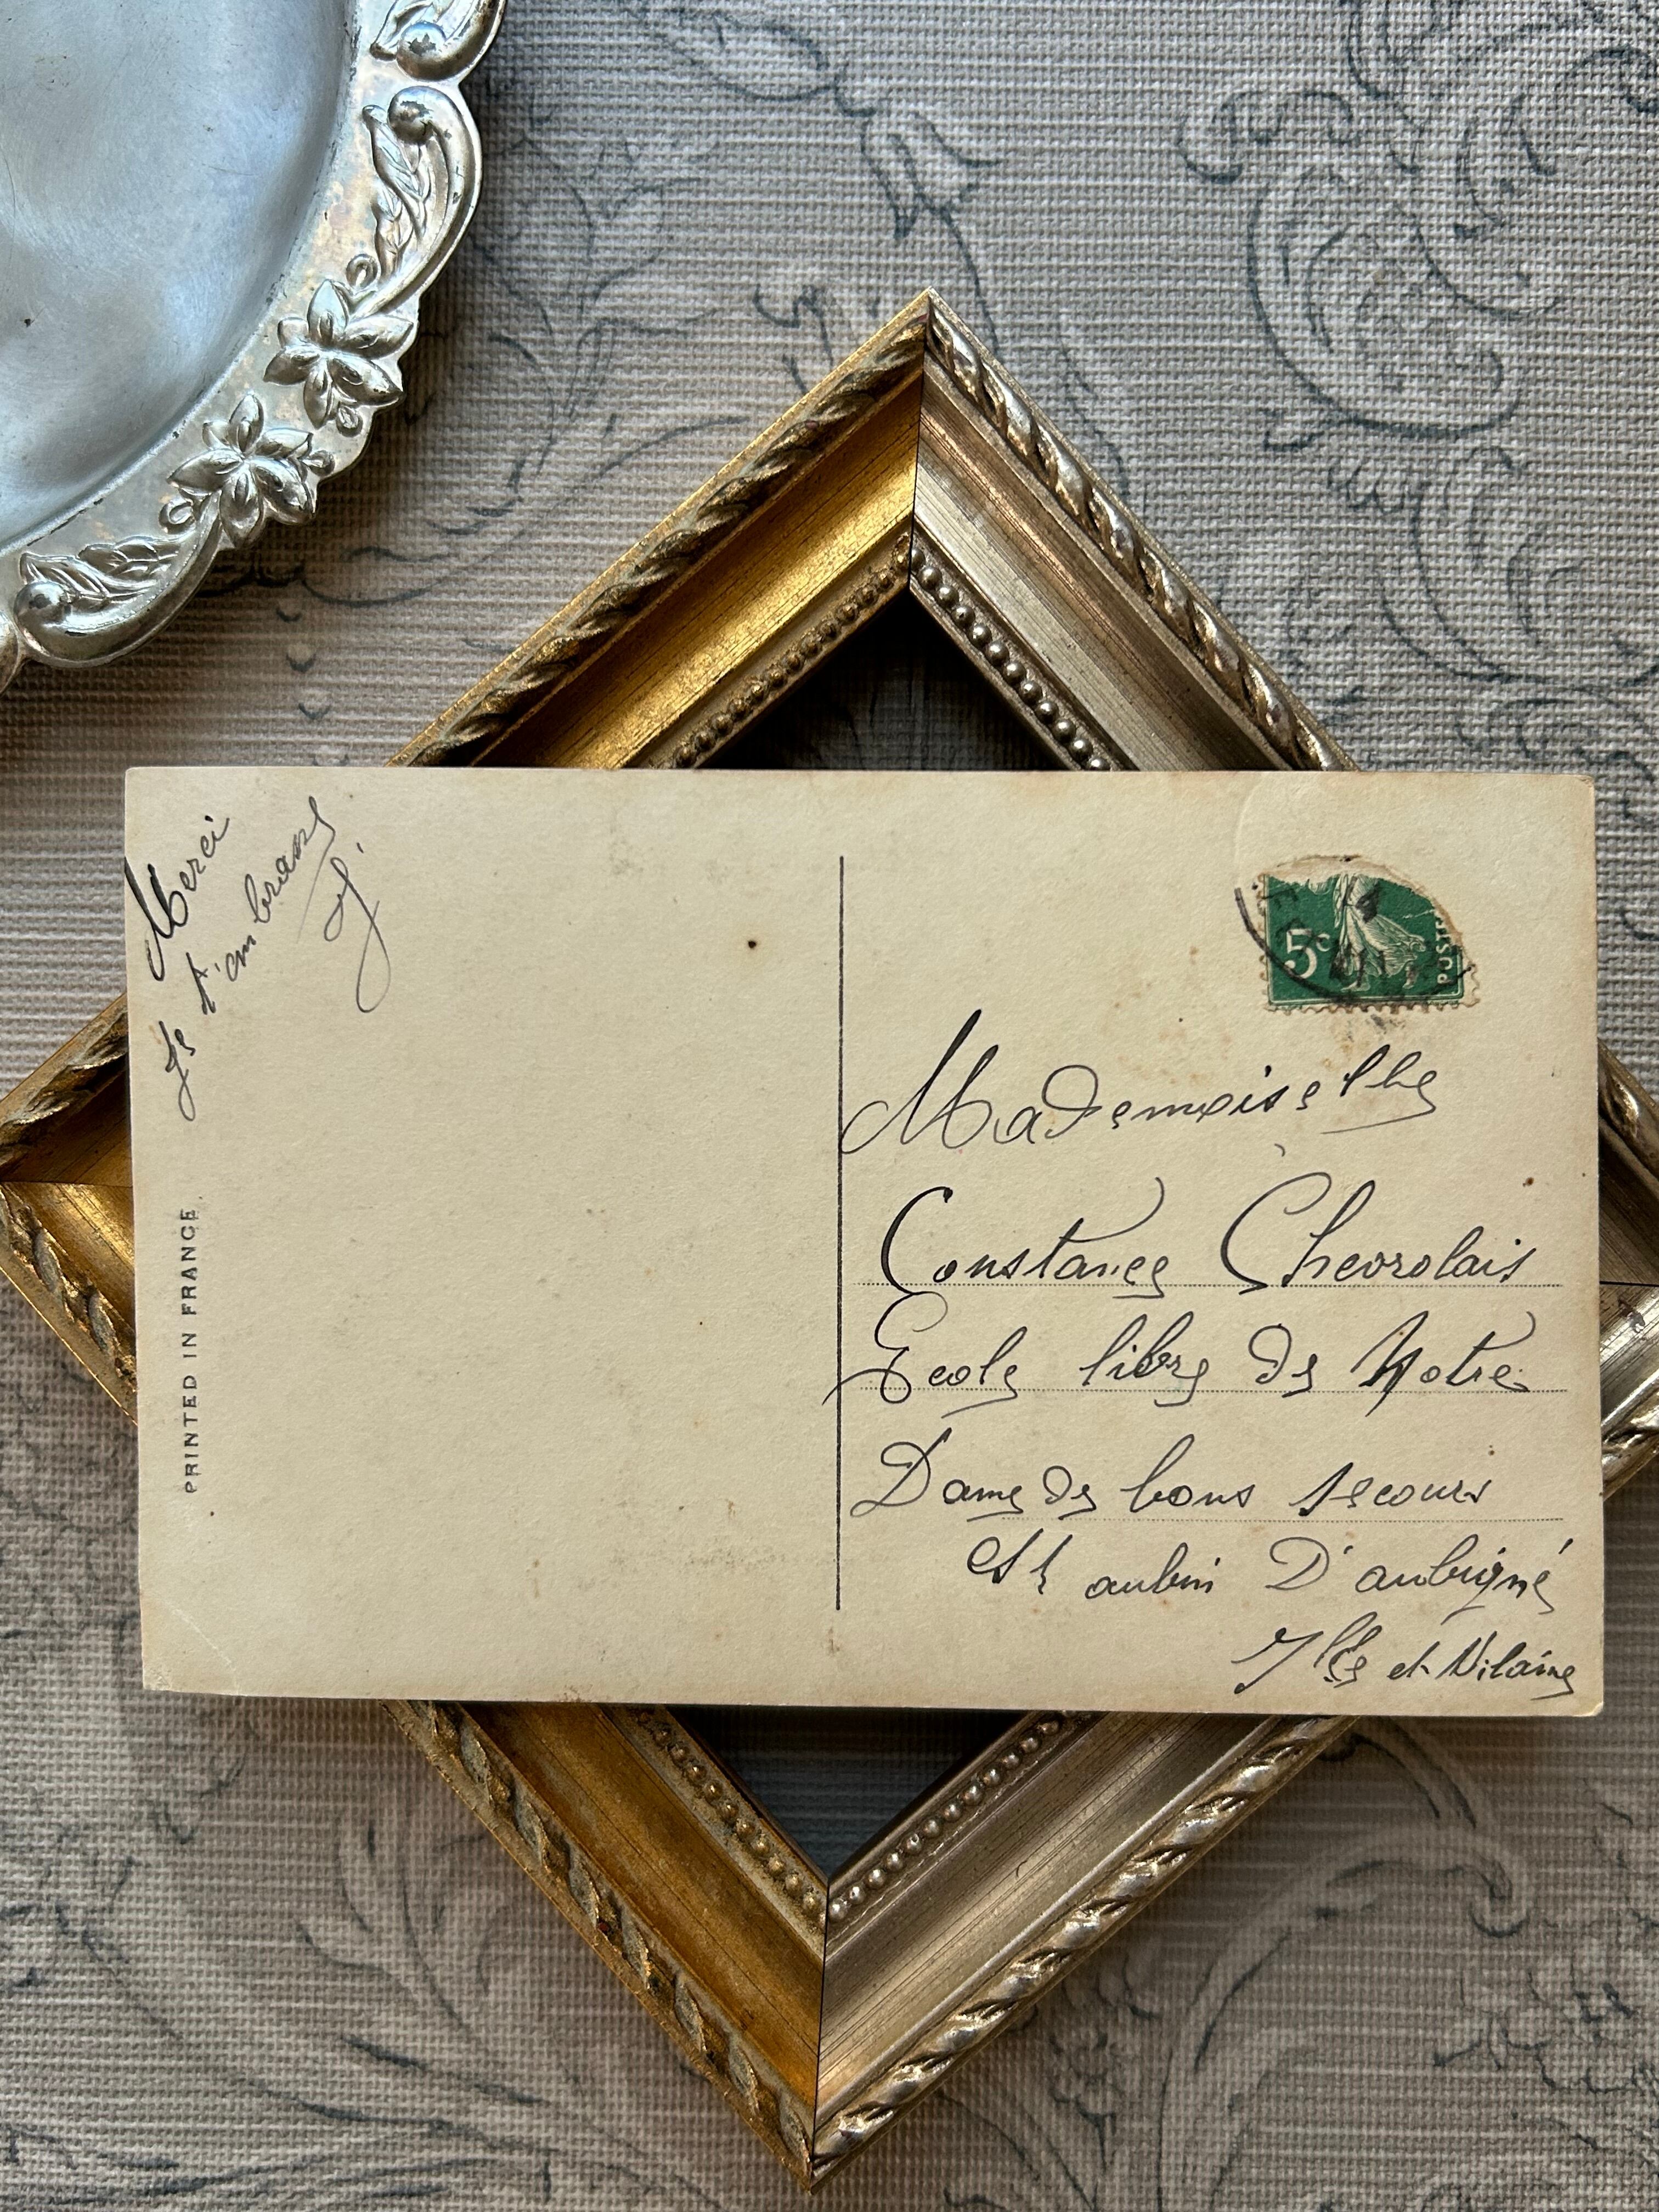 Merci
Je t'embrasse
PRINTED IN FRANCE.
5c
POSTES
Mademoiselle
Constance Chevrolais
Ecole libre de Notre
Dame de bons secours
St aubin D'aubigné
Ille et Vilaine